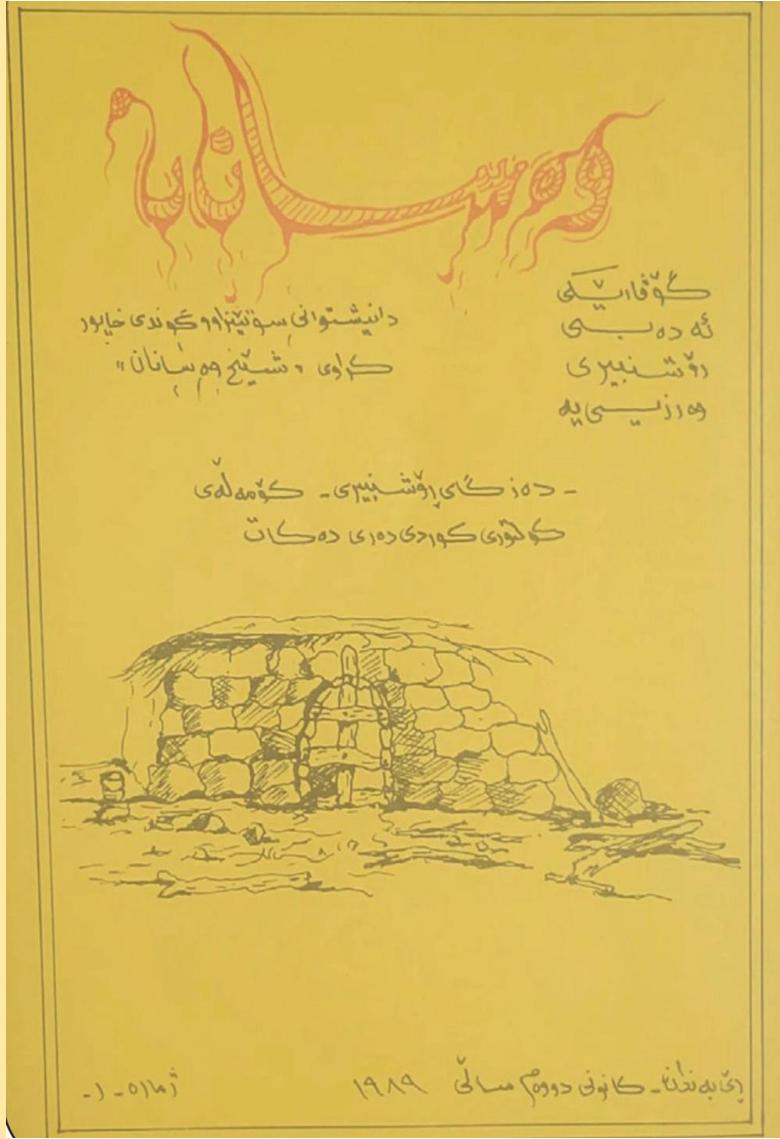 وەسانان
گۆڤارێکی
ئەدەبی
رۆشنبیری
وەرزیی یە
دانیشتوانی سوتێنراوو گوندی خاپور
کراوی «شێخ وەسانان»
- دەزگای ڕۆشنبیری - کۆمەڵەی
کولتوری کوردی دەری دەکات
ڕێ بەندان - کانونی دووەم ساڵی ١٩٨٩
ژمارە - ١ -